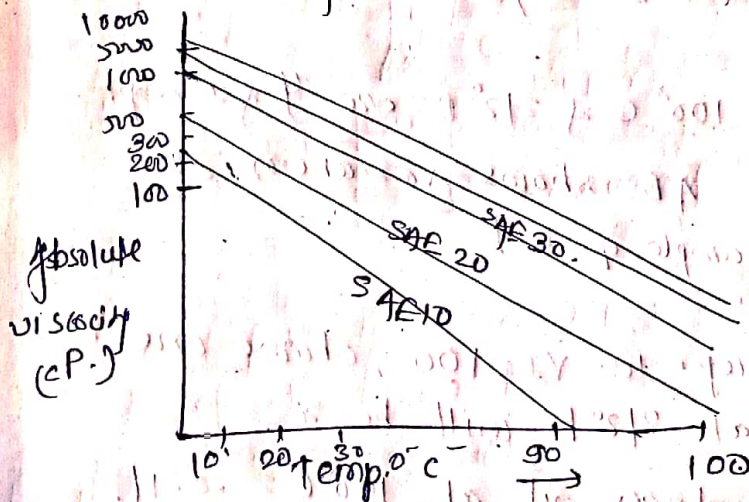 10000
5000
1000
500
300
200
100
Absolute
viscocity
(cP.)
SAE 30.
SAE 20
SAE 10
10 20 30 90 100
Temp. 0°C